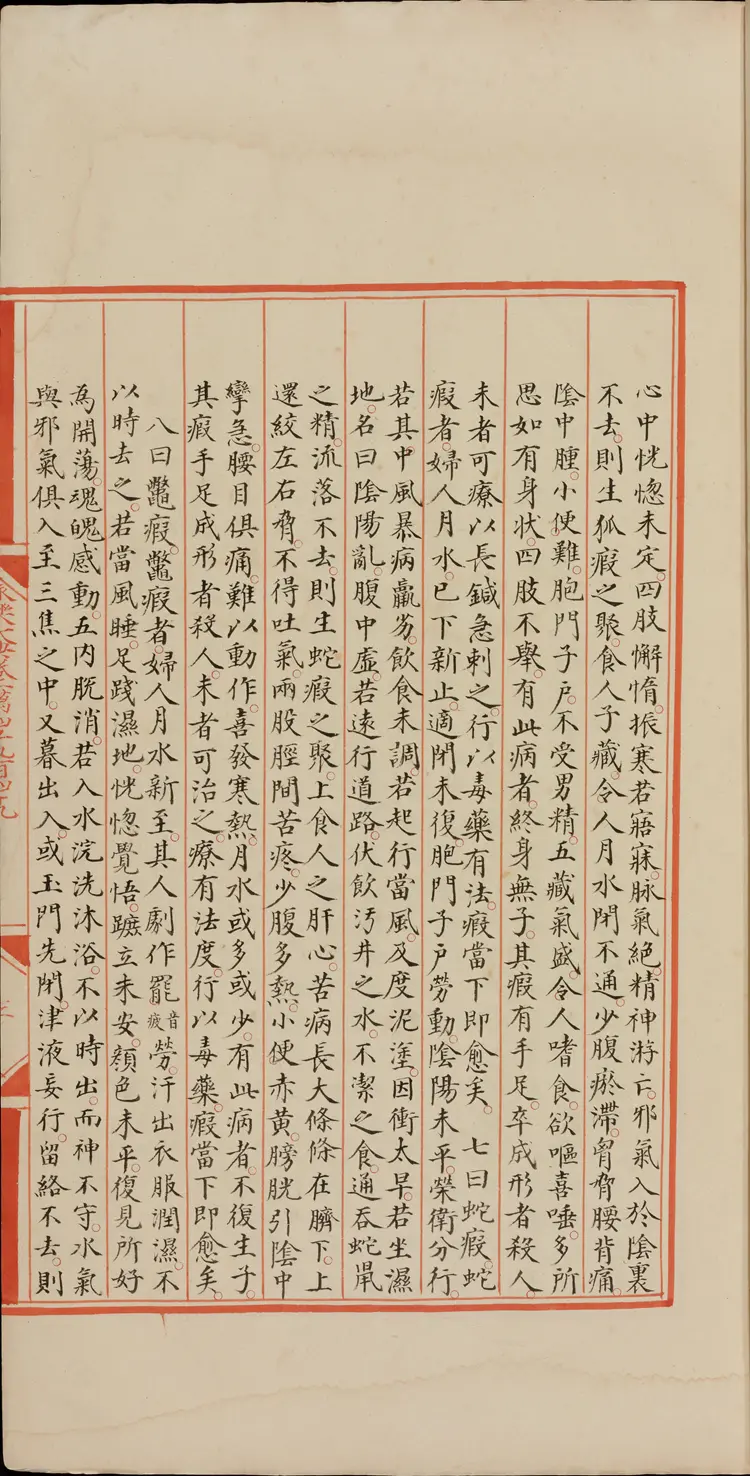 心中恍惚未定四肢懈惰振寒若寤寐脉氣絕精神游亡邪氣入於陰裏
不去則生狐瘕之聚食人子藏令人月水閉不通少腹瘀滯胷脅腰背痛
陰中腫小便難胞門子戶不受男精五藏氣盛令人嗜食欲嘔喜唾多所
思如有身狀四肢不舉有此病者終身無子其瘕有手足卒成形者殺人
未者可療以長鍼急刺之行以毒藥有法瘕當下即愈矣 七曰蛇瘕蛇
瘕者婦人月水已下新止適閉未復胞門子戶勞動陰陽未平榮衛分行
若其中風暴病羸劣飲食未調若起行當風及度泥塗因衝太早若坐濕
地名曰陰陽亂腹中虛若遠行道路伏飲污井之水不潔之食通吞蛇鼠
之精流落不去則生蛇瘕之聚上食人之肝心苦病長大條條在臍下上
還絞左右脅不得吐氣兩股脛間苦疼少腹多熱小便赤黃膀胱引陰中
攣急腰目俱痛難以動作喜發寒熱月水或多或少有此病者不復生子
其瘕手足成形者殺人未者可治之療有法度行以毒藥瘕當下即愈矣
八曰鼈瘕鼈瘕者婦人月水新至其人劇作罷音疲勞汗出衣服潤濕不
以時去之若當風睡足踐濕地恍惚覺悟蹠立未安顏色未平復見所好
為開蕩魂魄感動五內脫消若入水浣洗沐浴不以時出而神不守水氣
與邪氣俱入至三焦之中又暮出入或玉門先閉津液妄行留絡不去則